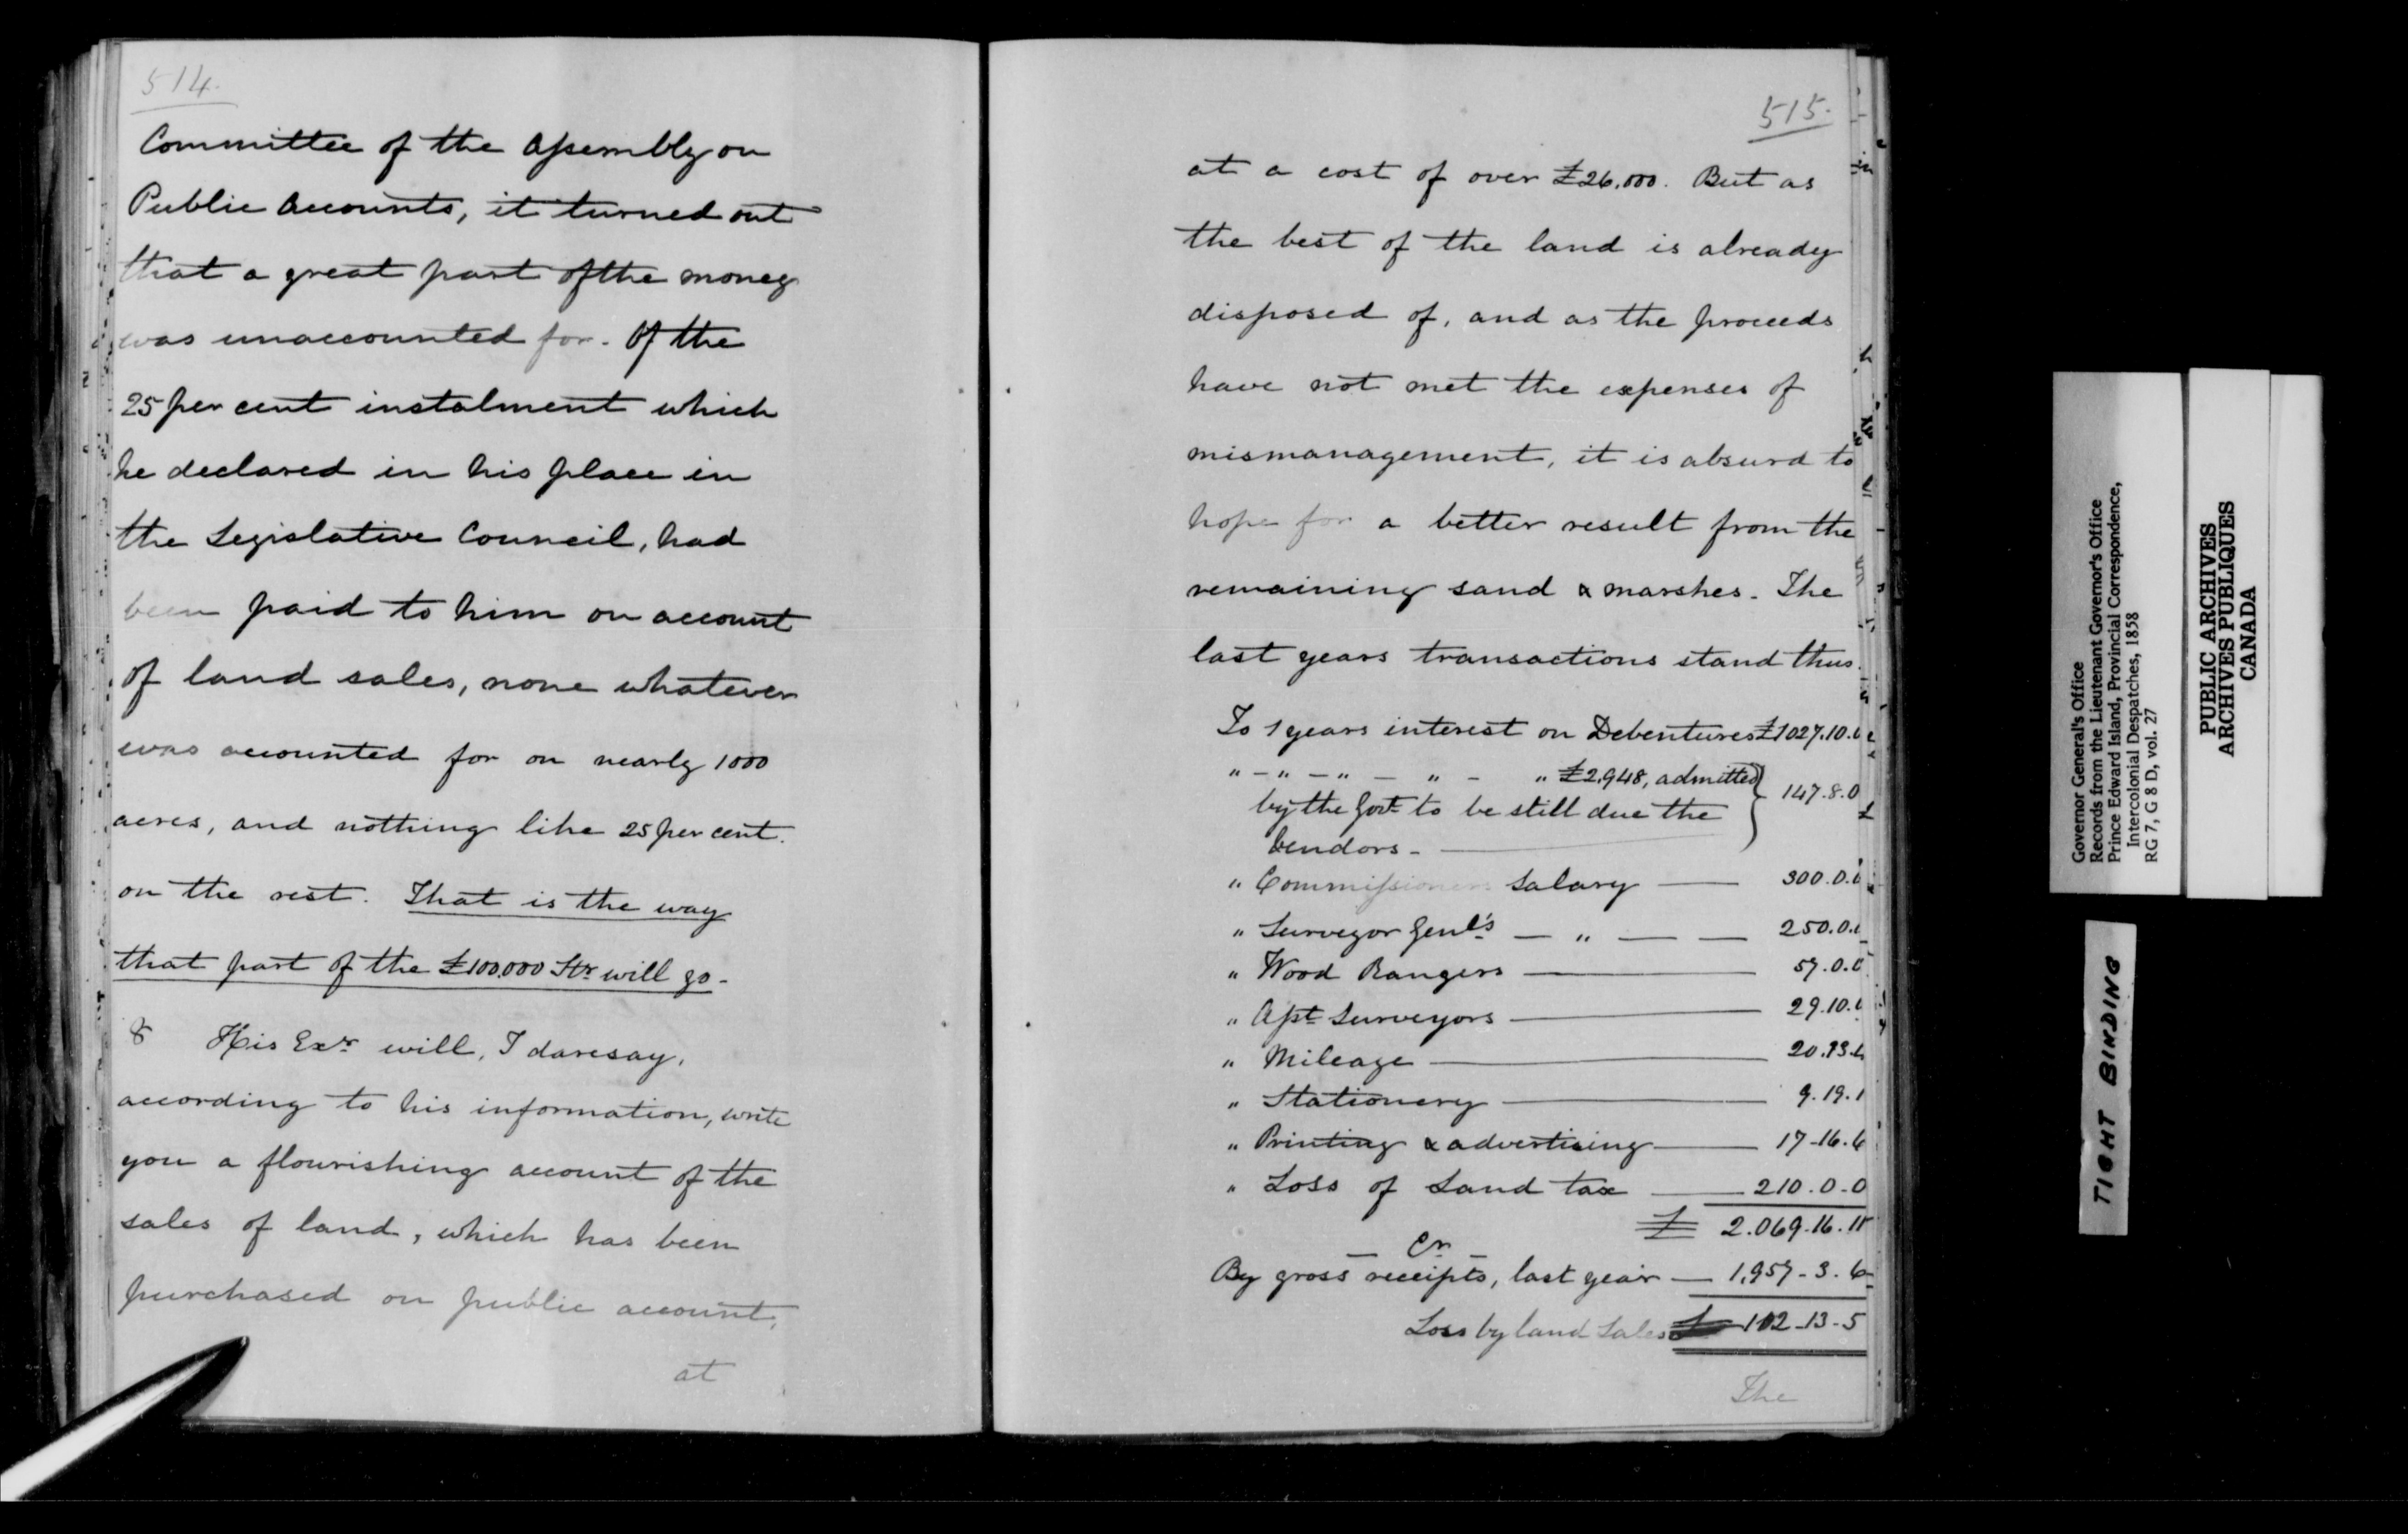 514.
Committee of the Assembly on
Public Accounts, it turned out
that a great part of the money
was unaccounted for. Of the
25 per cent instalment which
he declared in his place in
the Legislative Council, had
been paid to him on account
of land sales, none whatever
was accounted for on nearly 1000
acres, and nothing like 25 per cent.
on the rest. That is the way
that part of the £100,000 Stg will go.
8 His Excy will, I daresay,
according to his information, write
you a flourishing account of the
sales of land, which has been
purchased on public account,
at
515.
at a cost of over £26,000. But as
the best of the land is already
disposed of, and as the proceeds
have not met the expenses of
mismanagement, it is absurd to
hope for a better result from the
remaining sand & marshes. The
last years transactions stand thus.
To 1 years interest on Debentures £1027.10.0
" - " - " - " - " £2,948, admitted
by the Govt to be still due the 147.8.0
Vendors -
" Commissioners Salary — 300.0.0
" Surveyor Genl's — " — — 250.0.0
" Wood Rangers — 57.0.0
" Asst Surveyors — 29.10.0
" Mileage — 20.13.
" Stationery — 9.19.1
" Printing & advertising — 17-16.6
" Loss of Land tax — 210.0-0
£ 2.069.16.11
— Cr —
By gross receipts, last year — 1,957-3.6
Loss by land Sales £ 112-13-5
The
Governor General's Office
Records from the Lieutenant Governor's Office
Prince Edward Island, Provincial Correspondence,
Intercolonial Despatches, 1858
RG 7, G 8 D, vol. 27
PUBLIC ARCHIVES
ARCHIVES PUBLIQUES
CANADA
TIGHT BINDING